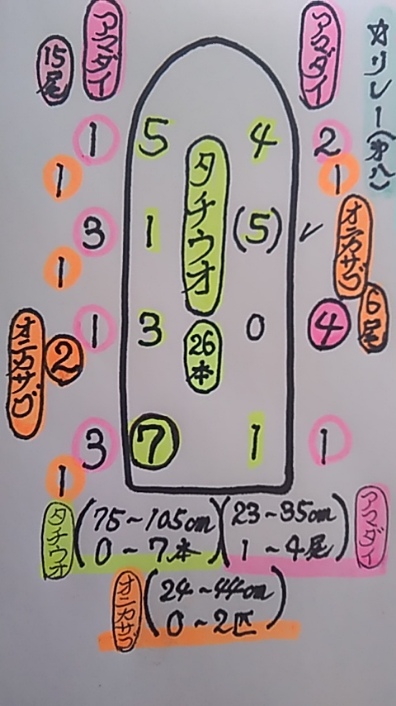 ☆リレー(第八)
アマダイ
アマダイ
15尾
1 5 4 2
1 1
タチウオ
3 1 (5) ✓
1
オニカサゴ
6尾
1 3 0 4
26本
オニカサゴ
2
3 7 1 1
1
タチウオ (75~105cm 0~7本)
(23~35cm 1~4尾) アマダイ
オニカサゴ (24~44cm 0~2匹)